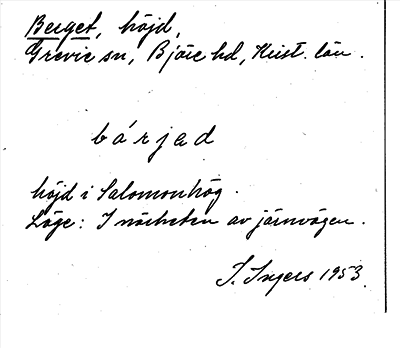 Berget, höjd,
Grevie sn, Bjäre hd, Krist. län.
bárjad
höjd i Salomonhög.
Läge: I närheten av järnvägen.
I. Ingers 1953.